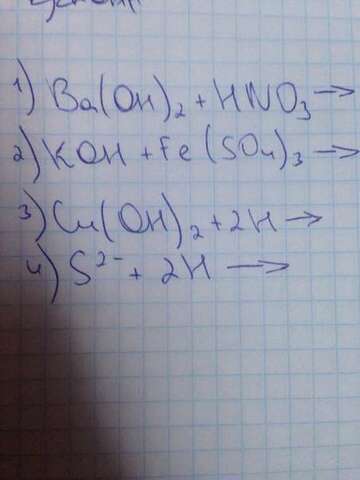 1) Ba(OH)₂ + HNO₃ →
2) KOH + Fe(SO₄)₃ →
3) Cu(OH)₂ + 2H →
4) S²⁻ + 2H →